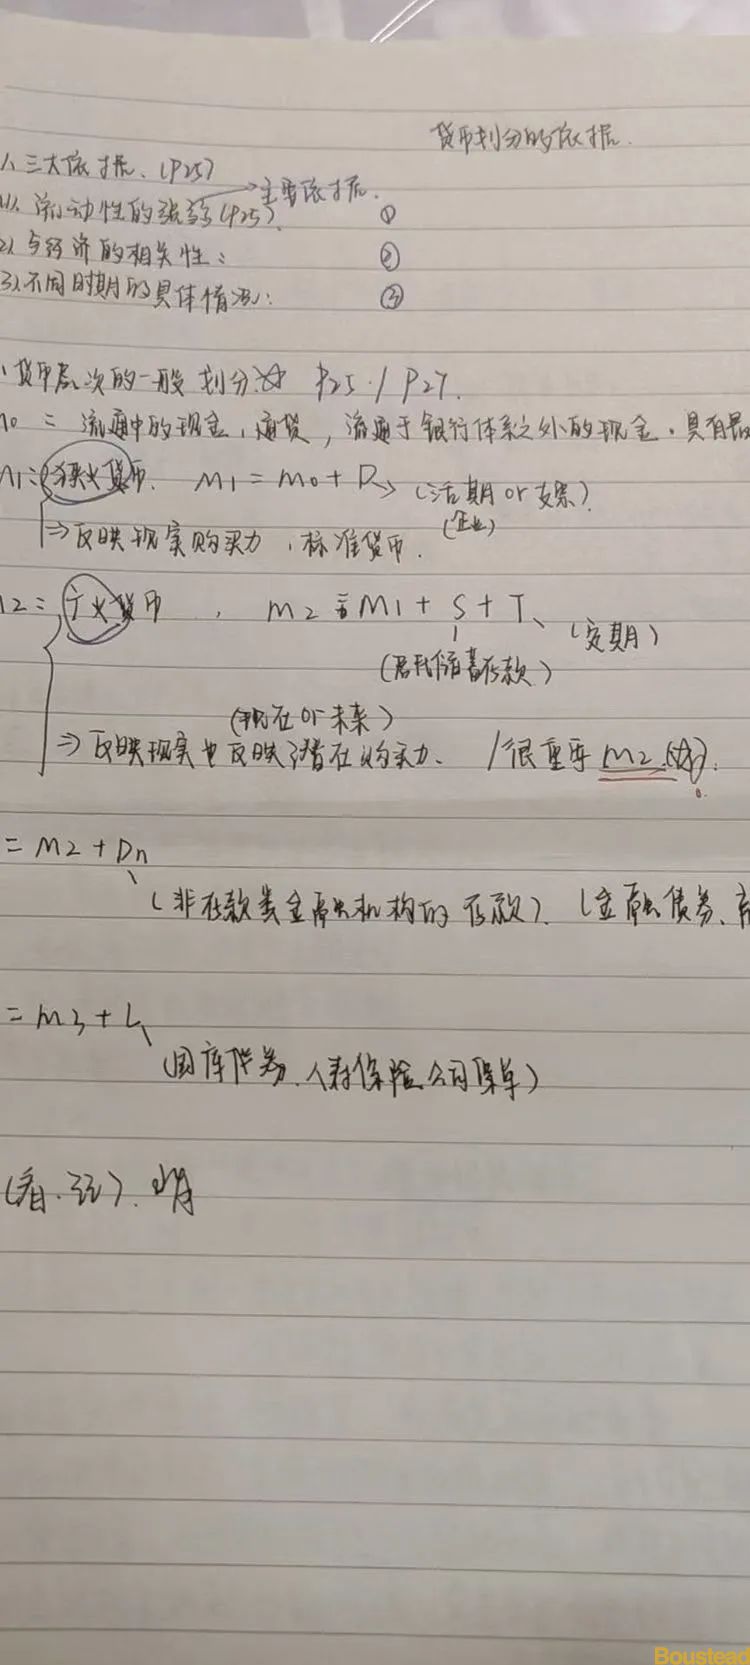 货币划分的依据.
1、三大依据、(P25)
(1). 流动性的强弱(P25). → 主要依据. ①
2). 与经济的相关性: ②
(3).不同时期的具体情况: ③
、货币层次的一般划分☆ P25 . / P27.
M0 = 流通中的现金,通货,流通于银行体系之外的现金.具有最
M1: 狭义货币. M1 = M0 + D → (活期 or 支票)
(企业)
⇒ 反映现实购买力,标准货币.
12 = 广义货币 , M2 = M1 + S + T、(定期)
(居民储蓄存款)
(现在 or 未来)
⇒ 反映现实也反映潜在购买力. / 很重要 M2.
= M2 + Dn
(非存款类金融机构的存款). (金融债券、商
= M3 + L
(国库券、人寿保险公司保单)
(看.
Boustead